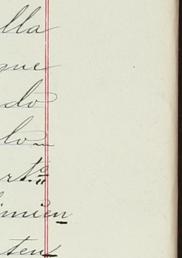 lla
que
do
lo
rto
imien
ten